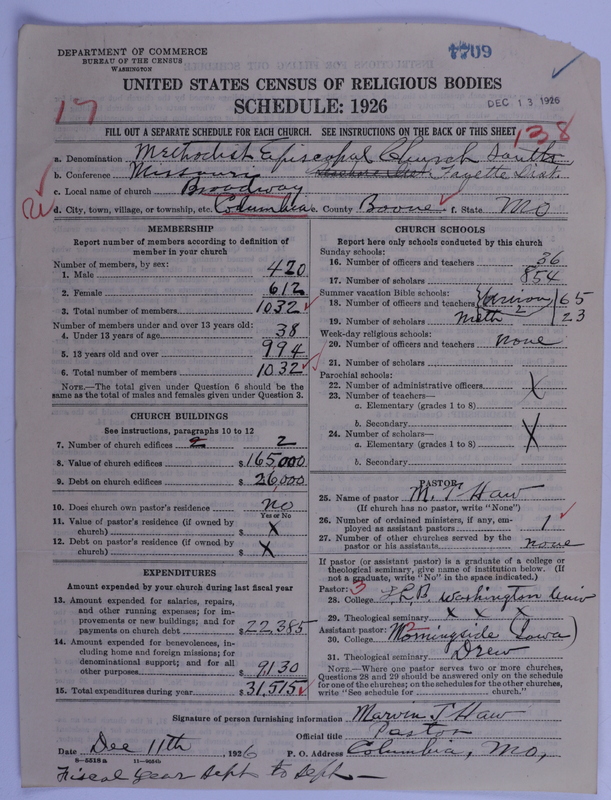 DEPARTMENT OF COMMERCE
BUREAU OF THE CENSUS
WASHINGTON
7709
UNITED STATES CENSUS OF RELIGIOUS BODIES
SCHEDULE: 1926
DEC 13 1926
17
138
FILL OUT A SEPARATE SCHEDULE FOR EACH CHURCH. SEE INSTRUCTIONS ON THE BACK OF THIS SHEET
a. Denomination Methodist Episcopal Church South
b. Conference Missouri Fayette Dist.
c. Local name of church Broadway
d. City, town, village, or township, etc. Columbia e. County Boone f. State Mo
MEMBERSHIP
Report number of members according to definition of
member in your church
Number of members, by sex:
1. Male 420
2. Female 612
3. Total number of members 1032
Number of members under and over 13 years old:
4. Under 13 years of age 38
5. 13 years old and over 994
6. Total number of members 1032
NOTE.—The total given under Question 6 should be the
same as the total of males and females given under Question 3.
CHURCH BUILDINGS
See instructions, paragraphs 10 to 12
7. Number of church edifices 2 2
8. Value of church edifices $165,000
9. Debt on church edifices $26,000
10. Does church own pastor's residence no
Yes or No
11. Value of pastor's residence (if owned by
church) $ X
12. Debt on pastor's residence (if owned by
church) $ X
EXPENDITURES
Amount expended by your church during last fiscal year
13. Amount expended for salaries, repairs,
and other running expenses; for im-
provements or new buildings; and for
payments on church debt $22,385
14. Amount expended for benevolences, in-
cluding home and foreign missions; for
denominational support; and for all
other purposes $9130
15. Total expenditures during year $31,515
CHURCH SCHOOLS
Report here only schools conducted by this church
Sunday schools:
16. Number of officers and teachers 56
17. Number of scholars 854
Summer vacation Bible schools:
18. Number of officers and teachers 65
19. Number of scholars Meth 2 23
Week-day religious schools:
20. Number of officers and teachers none
21. Number of scholars
Parochial schools:
22. Number of administrative officers X
23. Number of teachers—
a. Elementary (grades 1 to 8)
b. Secondary X
24. Number of scholars—
a. Elementary (grades 1 to 8)
b. Secondary
PASTOR
25. Name of pastor M. T. Haw
(If church has no pastor, write "None")
26. Number of ordained ministers, if any, em-
ployed as assistant pastors 1
27. Number of other churches served by the
pastor or his assistants none
If pastor (or assistant pastor) is a graduate of a college or
theological seminary, give name of institution below. (If
not a graduate, write "No" in the space indicated.)
Pastor: 3
28. College Washington Univ
29. Theological seminary X X X
Assistant pastor: 2
30. College Morningside (Iowa)
31. Theological seminary Drew
NOTE.—Where one pastor serves two or more churches,
Questions 28 and 29 should be answered only on the schedule
for one of the churches; on the schedules for the other churches,
write "See schedule for church."
Signature of person furnishing information Marvin T Haw
Official title Pastor
Date Dec 11th, 1926 P. O. Address Columbia, Mo,
8—5518a 11—9556b
Fiscal year Sept to Sept—